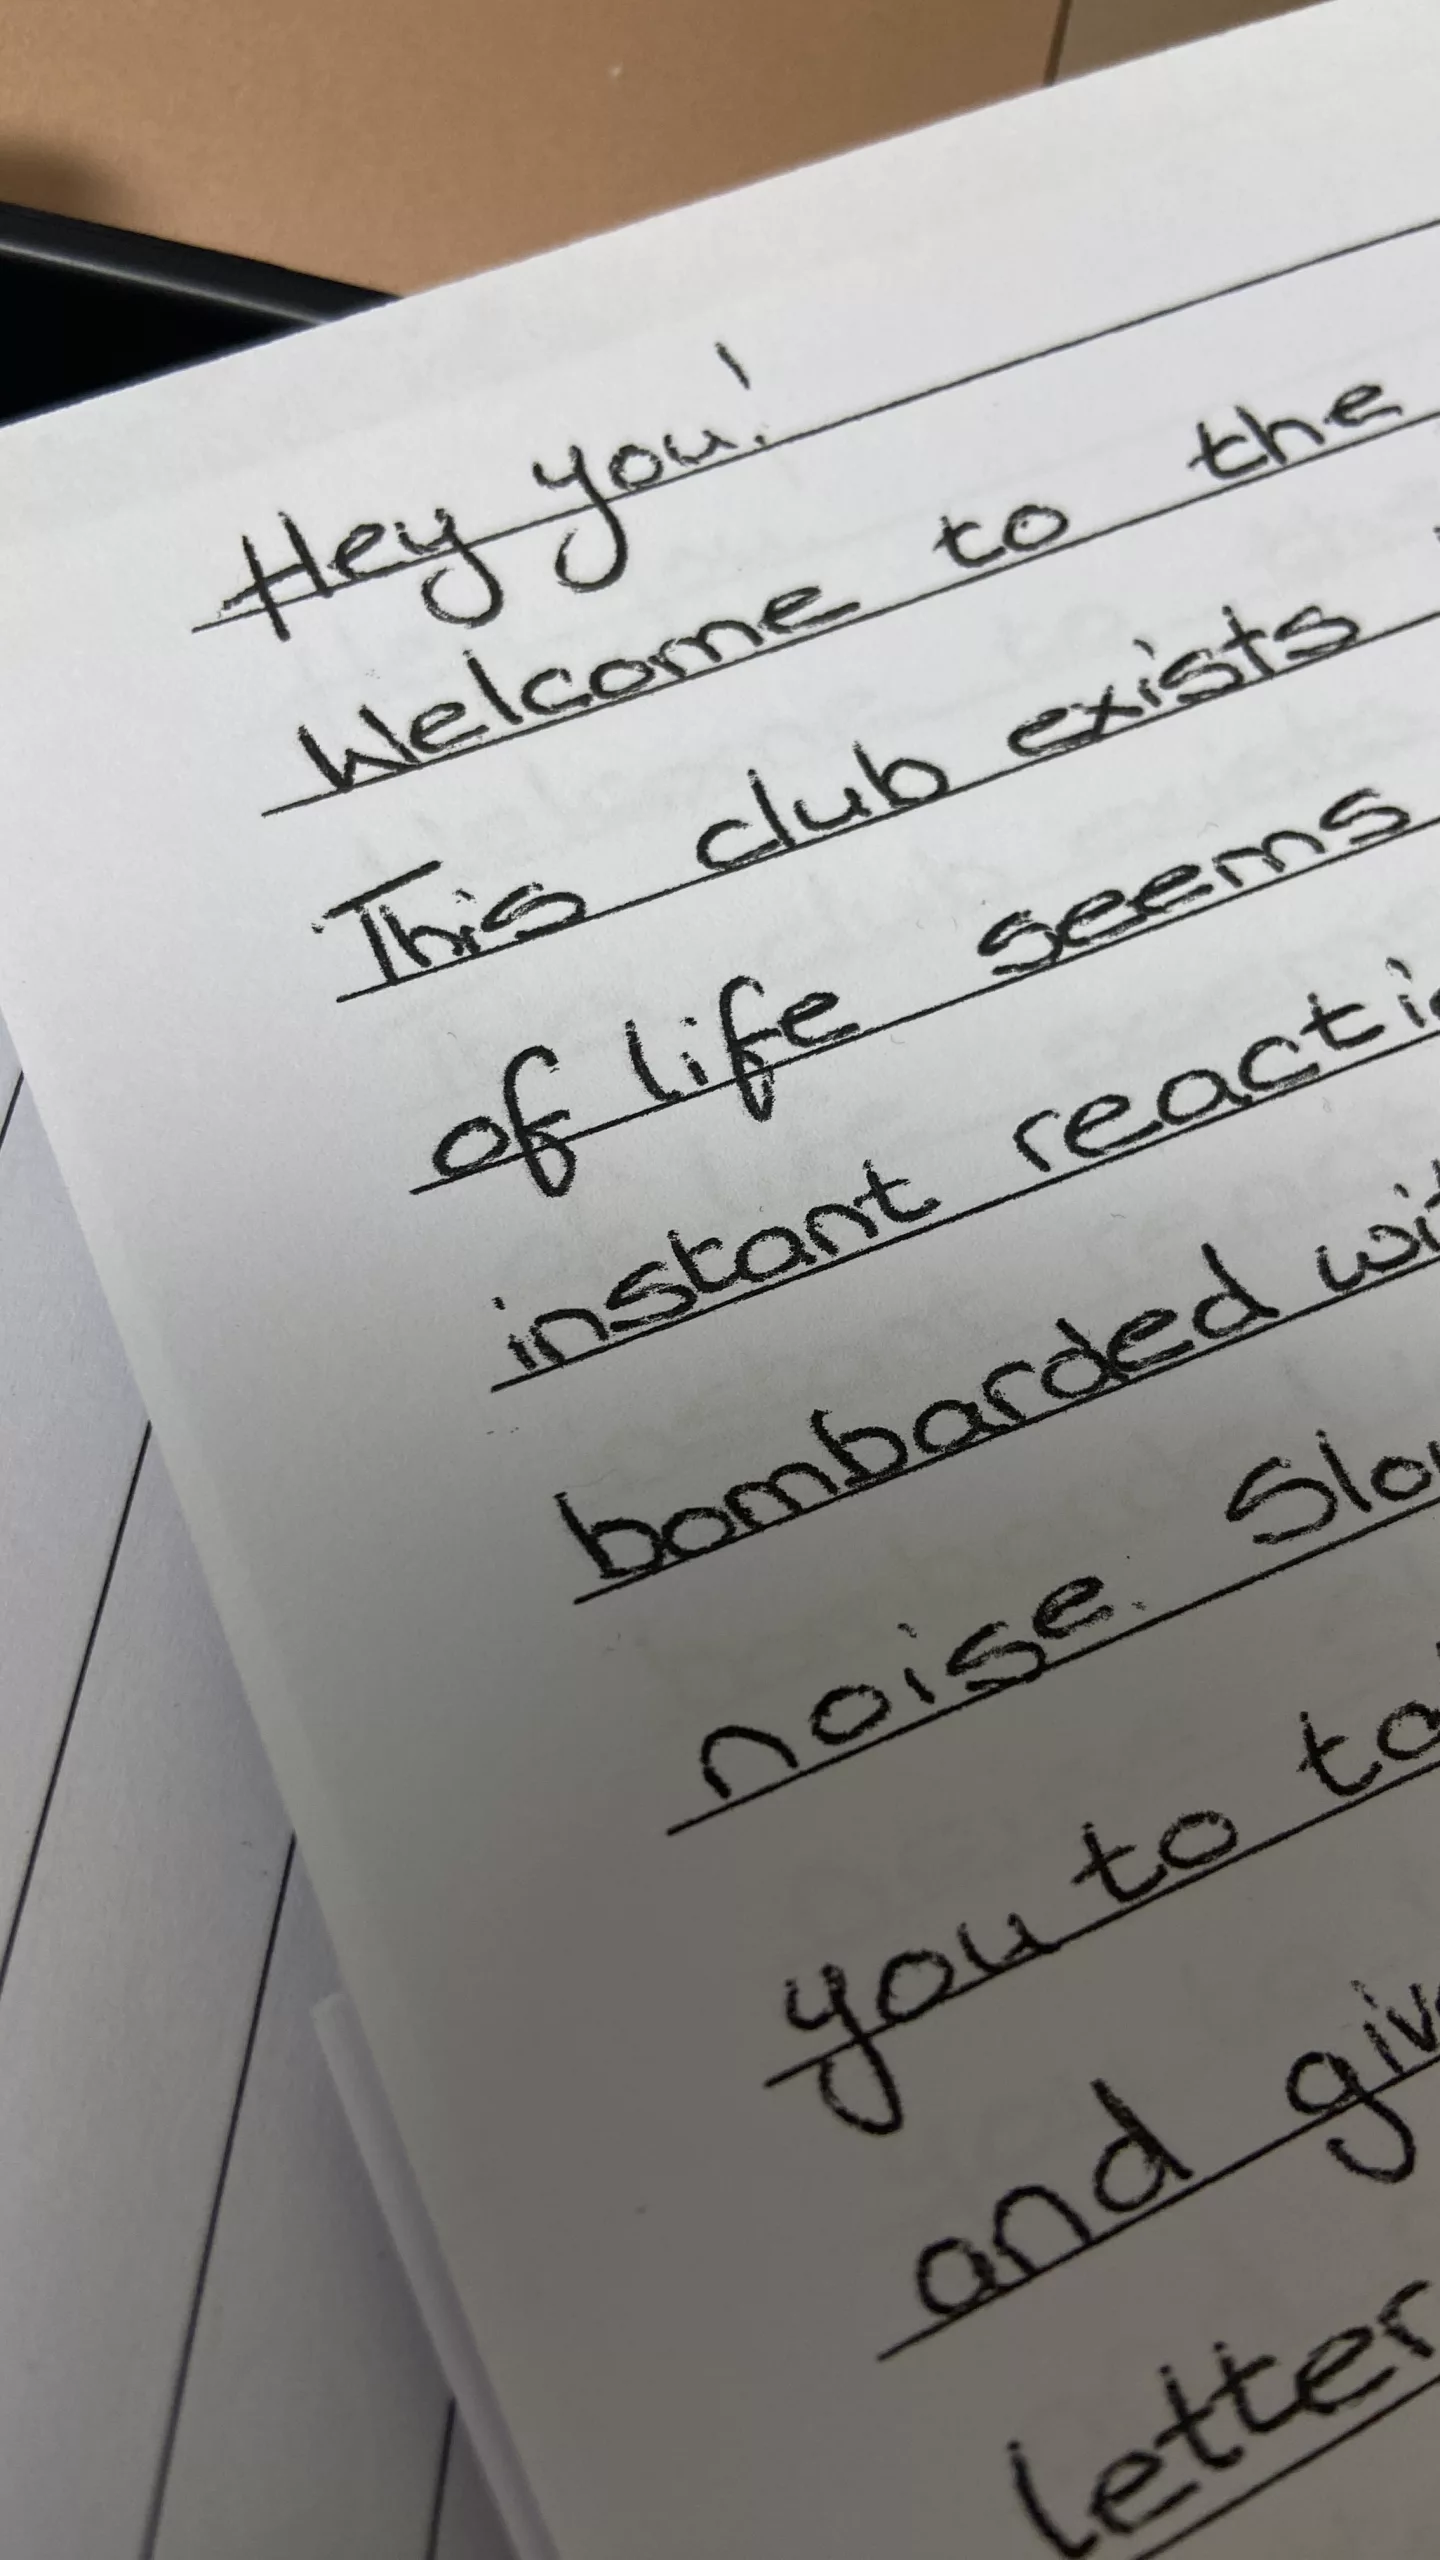 Hey you!
Welcome to the
This club exists
of life seems
instant
bombarded
noise.
you to
and
letter